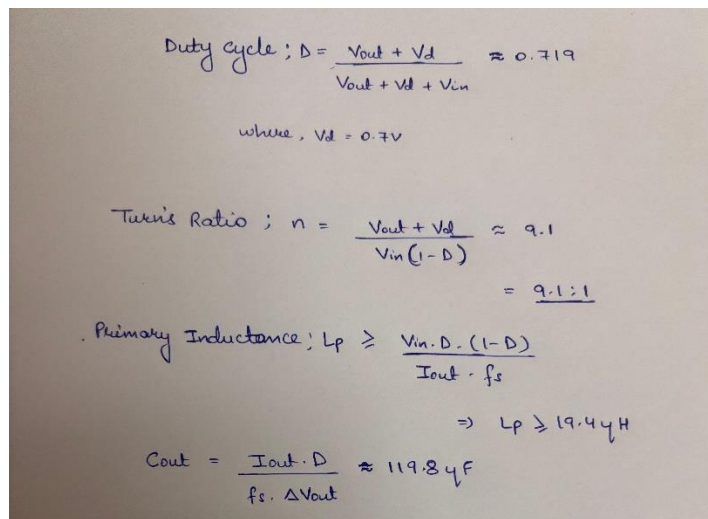 Duty cycle ; D = Vout + Vd / Vout + Vd + Vin ≈ 0.719
where, Vd = 0.7V
Turn's Ratio ; n = Vout + Vd / Vin (1 - D) ≈ 9.1
= 9.1 : 1
. Primary Inductance ; Lp ≥ Vin . D . (1-D) / Iout . fs
⇒ Lp ≥ 19.4 μH
Cout = Iout . D / fs . ΔVout ≈ 119.8 μF